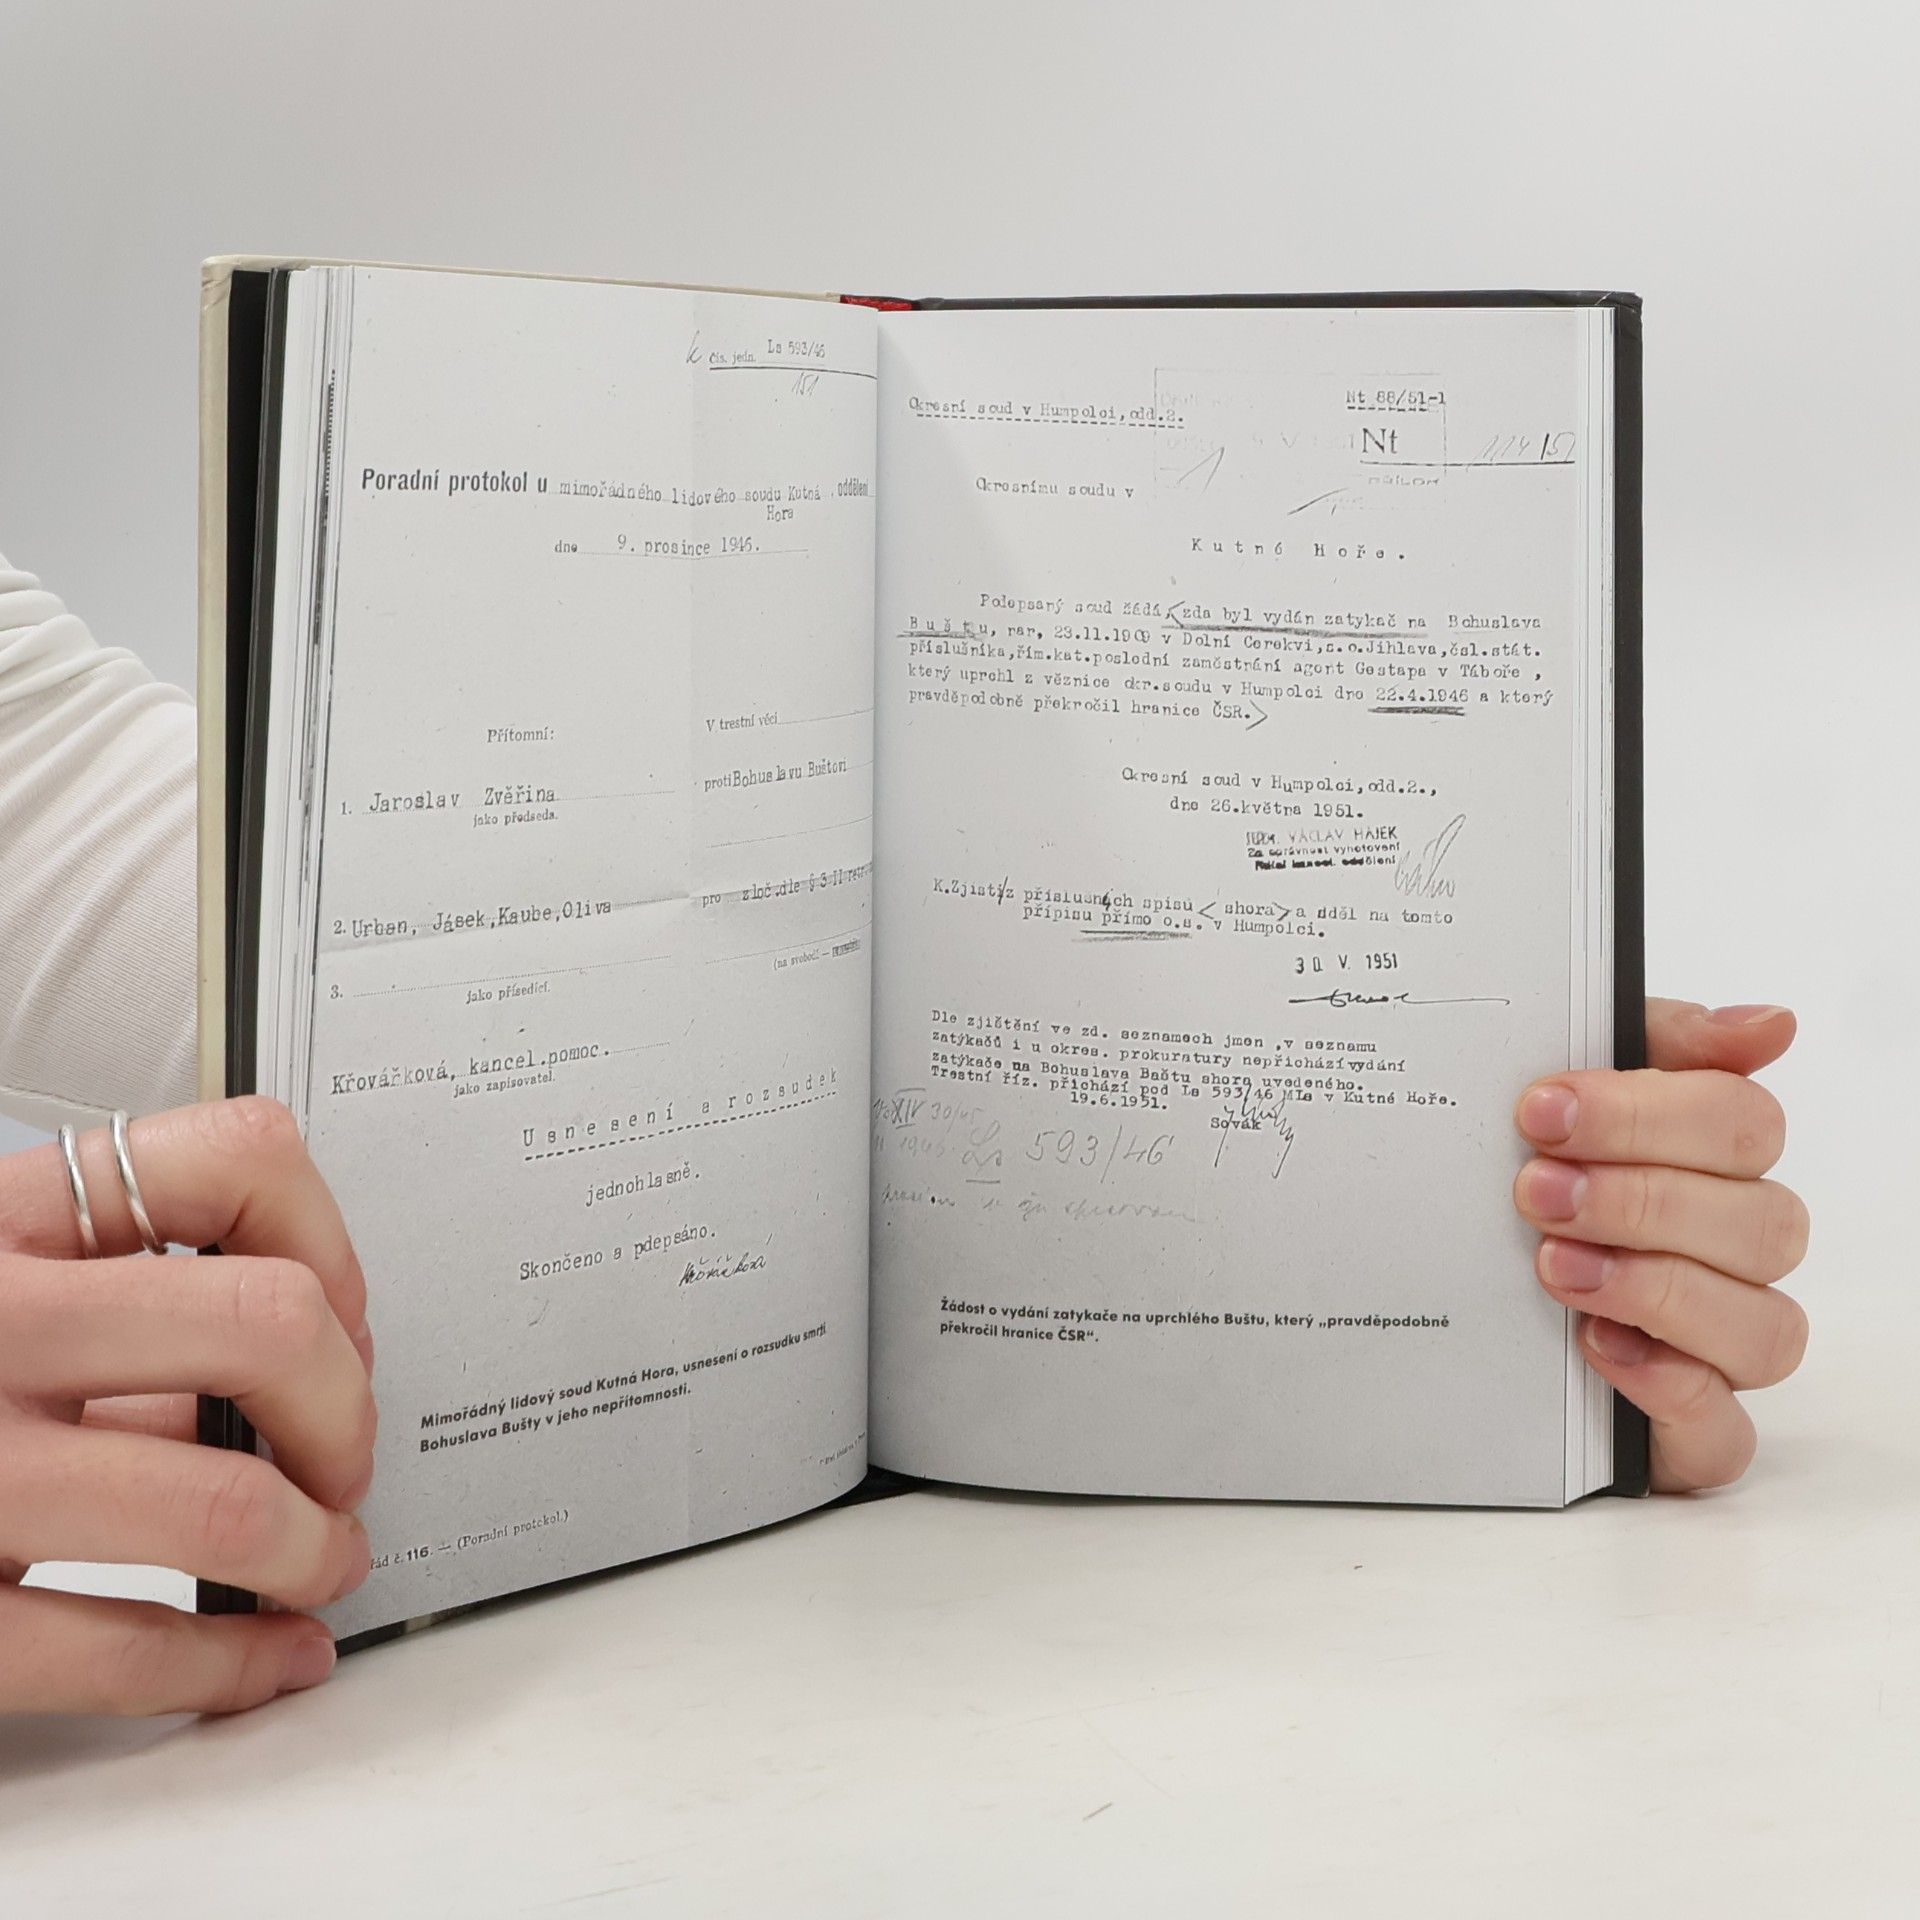 k čís. jedn. Ls 593/46
151
Poradní protokol u mimořádného lidového soudu Kutná , oddělení
Hora
dne 9. prosince 1946.
Přítomní:
V trestní věci
1. Jaroslav Zvěřina
jako předseda.
proti Bohuslavu Buštovi
2. Urban, Jásek, Kaube, Oliva
pro zloč.dle § 3 II retr.
(na svobodě —
3.
jako přísedící.
Křovářková, kancel.pomoc.
jako zapisovatel.
Usnesení a rozsudek
jednohlasně.
Skončeno a pdepsáno.
Křovářková
Mimořádný lidový soud Kutná Hora, usnesení o rozsudku smrti
Bohuslava Bušty v jeho nepřítomnosti.
řád č. 116. — (Poradní protokol.)
Nt 88/51-1
Okresní soud v Humpolci, odd.2.
Nt 114/51
Okresnímu soudu v
Kutné Hoře.
Podepsaný soud žádá, zda byl vydán zatykač na Bohuslava
Buštu, nar, 23.11.1909 v Dolní Cerekvi,s.o.Jihlava,čsl.stát.
příslušníka,řím.kat.poslední zaměstnání agent Gestapa v Táboře ,
který uprchl z věznice okr.soudu v Humpolci dne 22.4.1946 a který
pravděpodobně překročil hranice ČSR.
Okresní soud v Humpolci,odd.2.,
dne 26.května 1951.
VÁCLAV HÁJEK
Za správnost vyhotovení
oddělení
K.Zjisti z příslušných spisů < shora > a sděl na tomto
přípisu přímo o.s. v Humpolci.
30 V. 1951
Dle zjištění ve zd. seznamech jmen ,v seznamu
zatýkačů i u okres. prokuratury nepřichází vydání
zatýkače na Bohuslava Baštu shora uvedeného.
Trestní říz. přichází pod Ls 593/46 MLs v Kutné Hoře.
19.6.1951.
Sovák
XIV 30/45
Ls 593/46
Žádost o vydání zatykače na uprchlého Buštu, který „pravděpodobně
překročil hranice ČSR“.